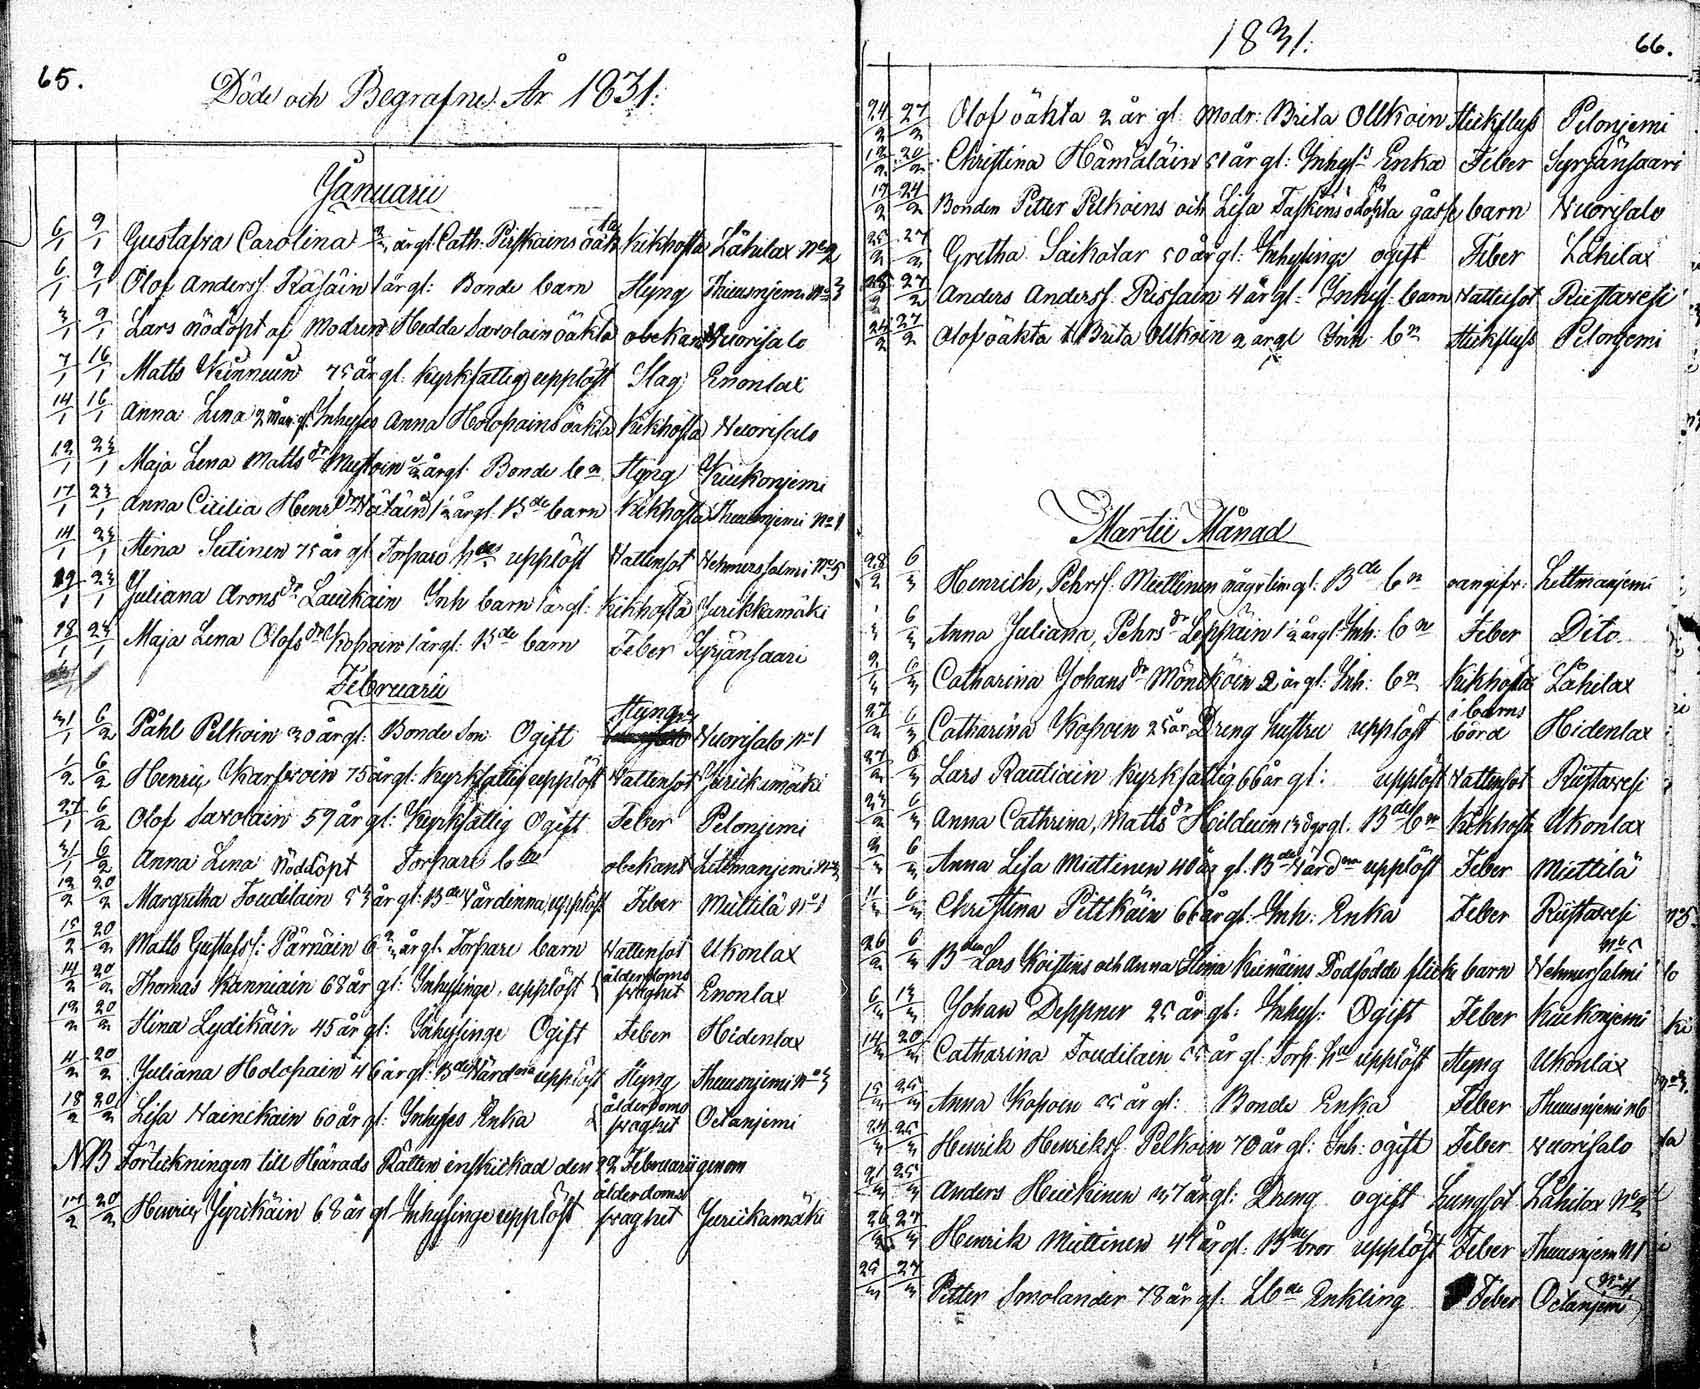 65.
Döde och Begrafne År 1831.
Januarii
6/1 9/1 Gustafva Carolina 3/12 år gl: Cath: Pirskains oäkta Kikhosta Låhilax No 2
6/1 9/1 Olof Anderss. Räsäin 1 år gl: Bonde barn Styng No 3
3/1 9/1 Lars nödöpt af Modren Hedda Savolain oäkta obekant Vuorisalo
7/1 16/1 Matts Kinnuin 75 år gl: kyrkfattig upplöst Slag Enonlax
14/1 16/1 Anna Lena 2 mån: gl: Inhyses Anna Holopains oäkta Kikhosta Vuorisalo
12/1 23/1 Maja Lena Matts dr år gl: Bonde bn Styng Kiukonjemi
17/1 23/1 Anna Cicilia Henr dr 1/2 år gl. Bde barn Kikhosta No 1
14/1 23/1 Stina Sutinen 75 år gl Torpare upplöst Vattensot Vehmersalmi No 5
19/1 23/1 Juliana Arons dr Laukain Inh barn 1 år gl: Kikhosta Jurikkamäki
18/1 23/1 Maja Lena Olofs dr Kopoin 1 år gl: Bde barn Feber Syrjänsaari
Februarii
31/1 6/2 Påhl Pelkoin 30 år gl: Bonde Son Ogift Styng Vuorisalo No 1
1/2 6/2 Henric Karhoin 75 år gl: kyrkfattig upplöst Vattensot Jurickamäki
27/1 6/2 Olof Savolain 59 år gl: Kyrkfattig Ogift Feber Pelonjemi
31/1 6/2 Anna Lena Nöddöpt Torpare bn obekant Litmanjemi No 3
13/2 20/2 Margretha Toudilain 53 år gl: Bde Värdinna upplöst Feber Miettilä No 1
15/2 20/2 Matts Gustafss: Pärnäin 6 år gl: Torpare barn Vattensot Ukonlax
14/2 20/2 Thomas Kanniain 68 år gl: Inhysinge, upplöst ålderdoms svaghet Enonlax
13/2 20/2 Stina Lydikäin 45 år gl: Inhysinge Ogift Feber Hidenlax
11/2 20/2 Juliana Holopain 46 år gl: Bde Värd na upplöst Styng No 3
18/2 20/2 Lisa Vainikain 60 år gl: Inhyses Enka ålderdoms svaghet Octanjemi
NB Förtickningen till Härads Rätten inskickad den 22 Februarii genom
17/2 20/2 Henric Jyrikäin 68 år gl Inhysinge upplöst ålderdoms svaghet Jurickamäki
1831.
66.
24/2 27/2 Olof oäkta 2 år gl: Modr: Brita Ollkoin Stickfluss Pelonjemi
12/2 20/2 Christina Hämäläin 51 år gl: Inhys: Enka Feber Syrjänsaari
19/2 24/2 Bonden Petter Pelkoins och Lisa Taskins odöpta gosse barn Vuorisalo
25/2 27/2 Gretha Saikolar 50 år gl: Inhysinge ogift Feber Låhilax
25/2 27/2 Anders Anderss. Rissain 4 år gl: Inhys: barn Vattusot Riistavesi
24/2 27/2 Olof oäkta Brita Ollkoin 2 år gl Inh: bn Stickfluss Pelonjemi
Martii Månad
28/2 6/3 Henrich Pehrss: Miettinen några tim gl: Bde bn oangifv: Littmanjemi
1/3 6/3 Anna Juliana, Pehrs dr Leppäin 1 1/2 år gl: Inh: bn Feber Dito
2/3 6/3 Catharina Johans dr Mönkköin 2 år gl: Inh: bn Kikhosta Låhilax
27/2 6/3 Catharina Kopoin 25 år Dreng hustru upplöst i barns börd Hidenlax
27/2 6/3 Lars Rautiain kyrkfattig 66 år gl: upplöst Vattensot Riistavesi
23/2 6/3 Anna Cathrina, Matts dr 13 dgr gl. Bde bn Kikhosta Ukonlax
2/3 6/3 Anna Lisa Miettinen 40 år gl: Bde Värd na upplöst Feber Miettilä
1/3 6/3 Christina Pittkäin 66 år gl: Inh: Enka Feber Riistavesi
26/2 6/3 Bden Lars Koistins och Anna Stina Dödfödde flicke barn Vehmersalmi No 5
6/3 13/3 Johan Deppner 25 år gl: Inhys: Ogift Feber Kiukonjemi
14/3 20/3 Catharina Toudilain 55 år gl: Torp: upplöst Styng Ukonlax
15/3 25/3 Anna Kopoin 55 år gl: Bonde Enka Feber
24/3 25/3 Henrik Henrikss. Pelkoin 70 år gl: Inh: ogift Feber Vuorisalo
21/3 25/3 Anders Huckinen 37 år gl: Dreng ogift Lungsot Låhilax No 2
26/3 27/3 Henrik Miettinen 44 år gl: Bde bror upplöst Feber
25/3 27/3 Petter Smolander 78 år gl: Enkling Feber Octanjemi No 4